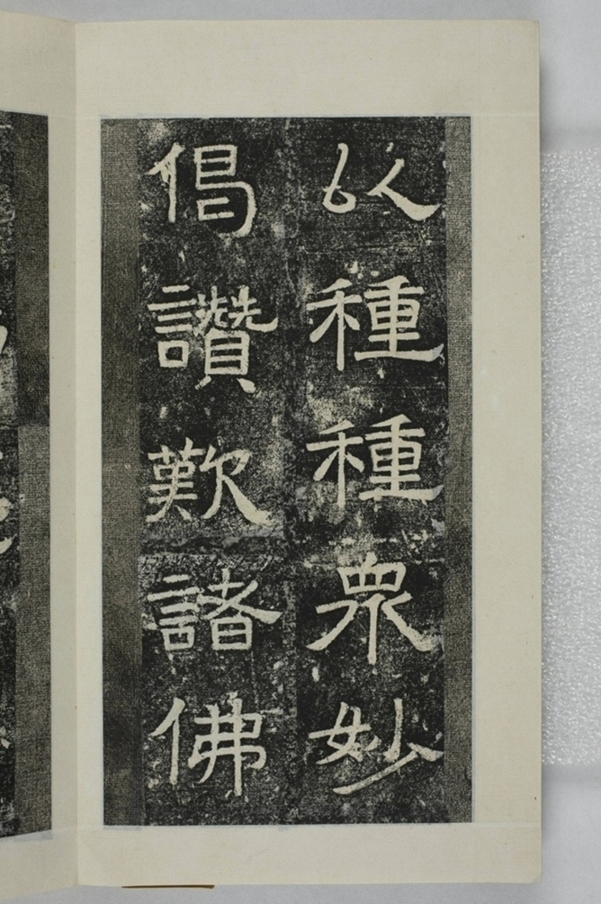 以種種衆妙
偈讚歎諸佛